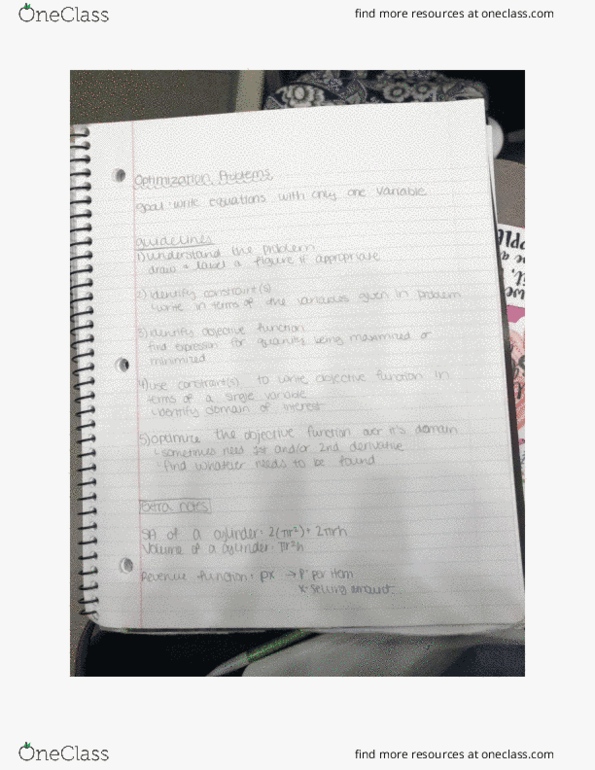 OneClass
find more resources at oneclass.com
Optimization Problems
goal: write equations with only one variable
guidelines
1) understand the problem
draw + label a figure if appropriate
2) identify constraint(s)
write in terms of the variables given in problem
3) identify objective function
find expression for quantity being maximized or
minimized
4) use constraint(s) to write objective function in
terms of a single variable
identify domain of interest
5) optimize the objective function over it's domain
sometimes need 1st and/or 2nd derivative
find whatever needs to be found
extra notes
SA of a cylinder = 2(πr²) + 2πrh
Volume of a cylinder = πr²h
Revenue function = px → p per item
x = selling amount
OneClass
find more resources at oneclass.com